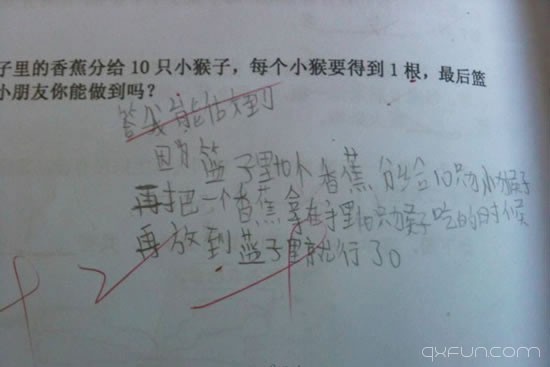 子里的香蕉分给 10 只小猴子，每个小猴要得到 1 根，最后篮
小朋友你能做到吗？
答我能做到
因为篮子里10个香蕉分给10只小猴子
再把一个香蕉拿在手里10只猴子吃的时候
再放到篮子里就行了。
qxfun.com